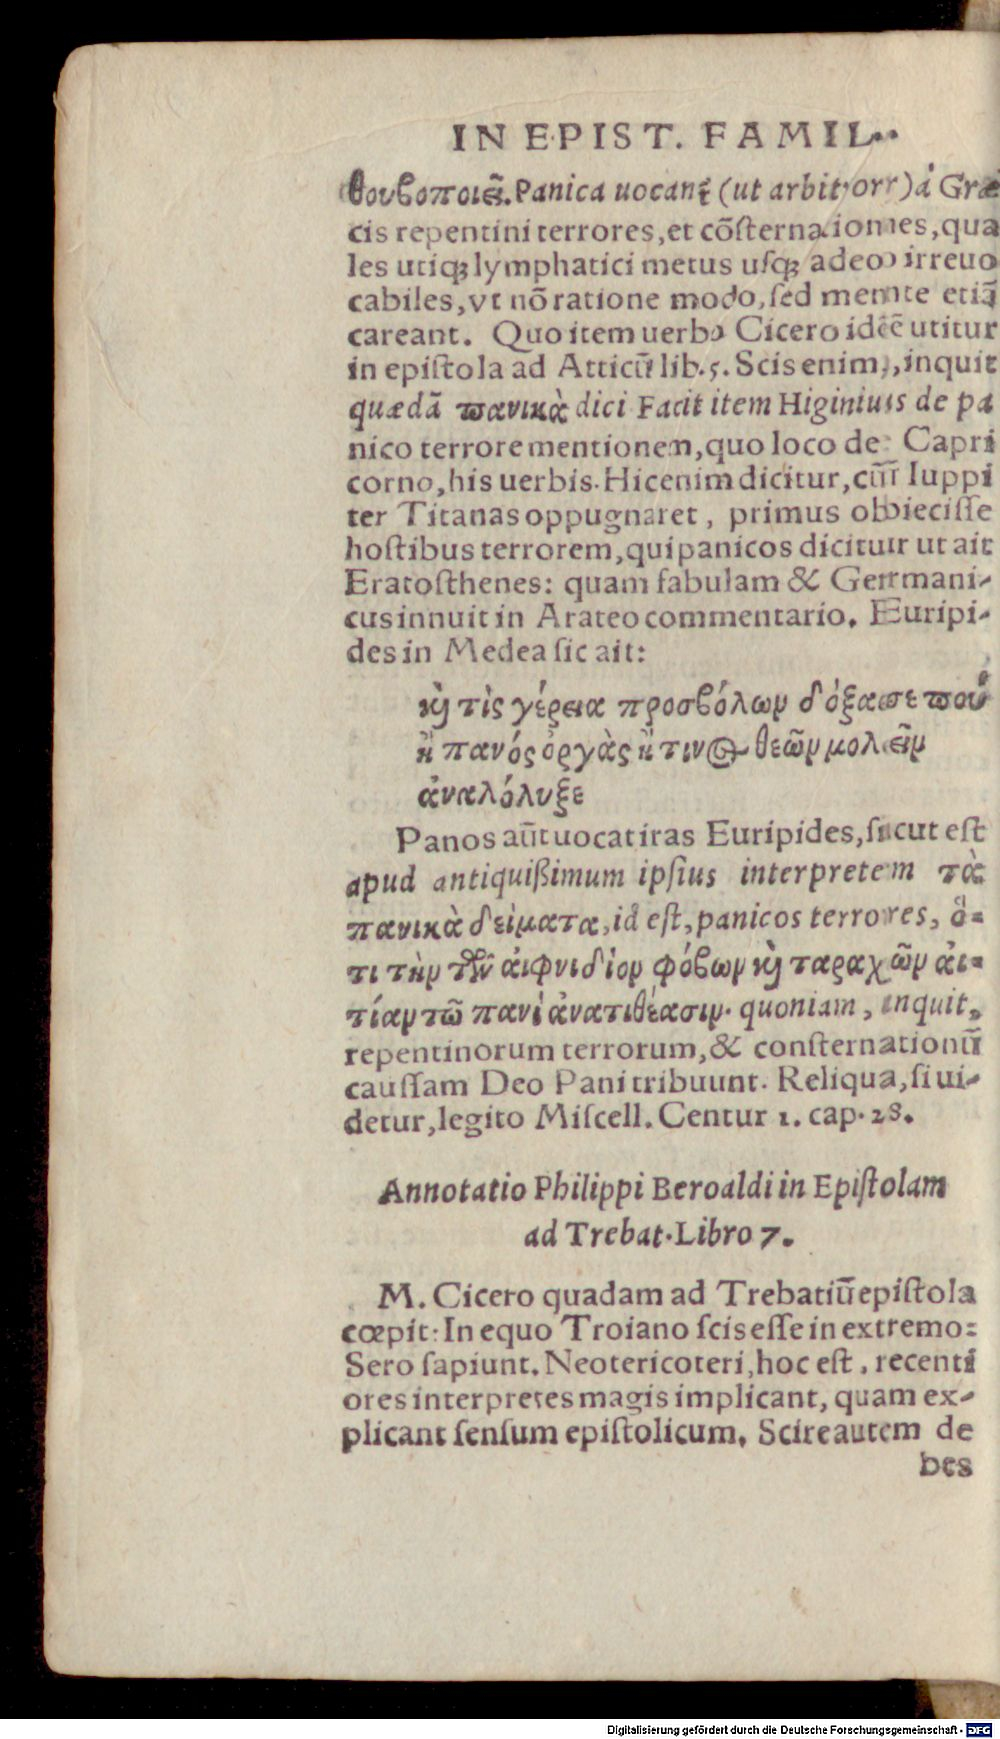 IN EPIST. FAMIL.
θουβοποιεῖ. Panica uocant̃ (ut arbitror) à Græ
cis repentini terrores, et cõsternationes, qua
les utiqꝫ lymphatici metus usqꝫ adeo irreuo
cabiles, vt nõ ratione modo, sed mente etiã
careant. Quo item uerbo Cicero idẽ utitur
in epistola ad Atticũ lib. 5. Scis enim, inquit
quædã πανικὰ dici Facit item Higinius de pa
nico terrore mentionem, quo loco de Capri
corno, his uerbis. Hic enim dicitur, cũ Iuppi
ter Titanas oppugnaret, primus obiecisse
hostibus terrorem, qui panicos dicitur ut ait
Eratosthenes: quam fabulam & Germani-
cus innuit in Arateo commentario. Euripi-
des in Medea sic ait:
καὶ τὶς γέρεια προσβόλων δόξασε που
ἢ πανός ὀργὰς ἤ τινος θεῶν μολεῖν
ἀναλόλυξε
Panos aũt uocat iras Euripides, sicut est
apud antiquißimum ipsius interpretem τὰ
πανικὰ δείματα, id est, panicos terrores, ὅ-
τι τὴν τῶν αἰφνιδίον φόβων καὶ ταραχῶν αἰ-
τίαν τῶ πανὶ ἀνατιθέασιν. quoniam, inquit,
repentinorum terrorum, & consternationũ
caussam Deo Pani tribuunt. Reliqua, si ui-
detur, legito Miscell. Centur 1. cap. 28.
Annotatio Philippi Beroaldi in Epistolam
ad Trebat. Libro 7.
M. Cicero quadam ad Trebatiũ epistola
cœpit: In equo Troiano scis esse in extremo:
Sero sapiunt. Neotericoteri, hoc est, recenti
ores interpretes magis implicant, quam ex-
plicant sensum epistolicum. Scire autem de
bes
Digitalisierung gefördert durch die Deutsche Forschungsgemeinschaft - DFG